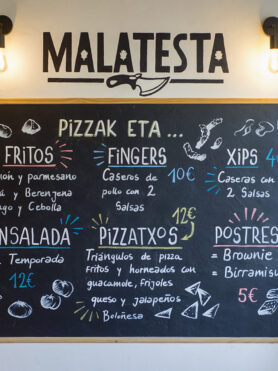 MALATESTA
PIZZAK ETA ...
FRITOS
y parmesano
y Berenjena
y Cebolla
FINGERS
10€
Caseros de
pollo con 2
Salsas
XIPS
Caseras con
2 Salsas
Temporada
12€
PIZZATXOS
12€
Triángulos de pizza
fritos y horneados con
guacamole, frijoles
queso y jalapeños
Boloñesa
POSTRES
= Brownie
= Birramisu
5€